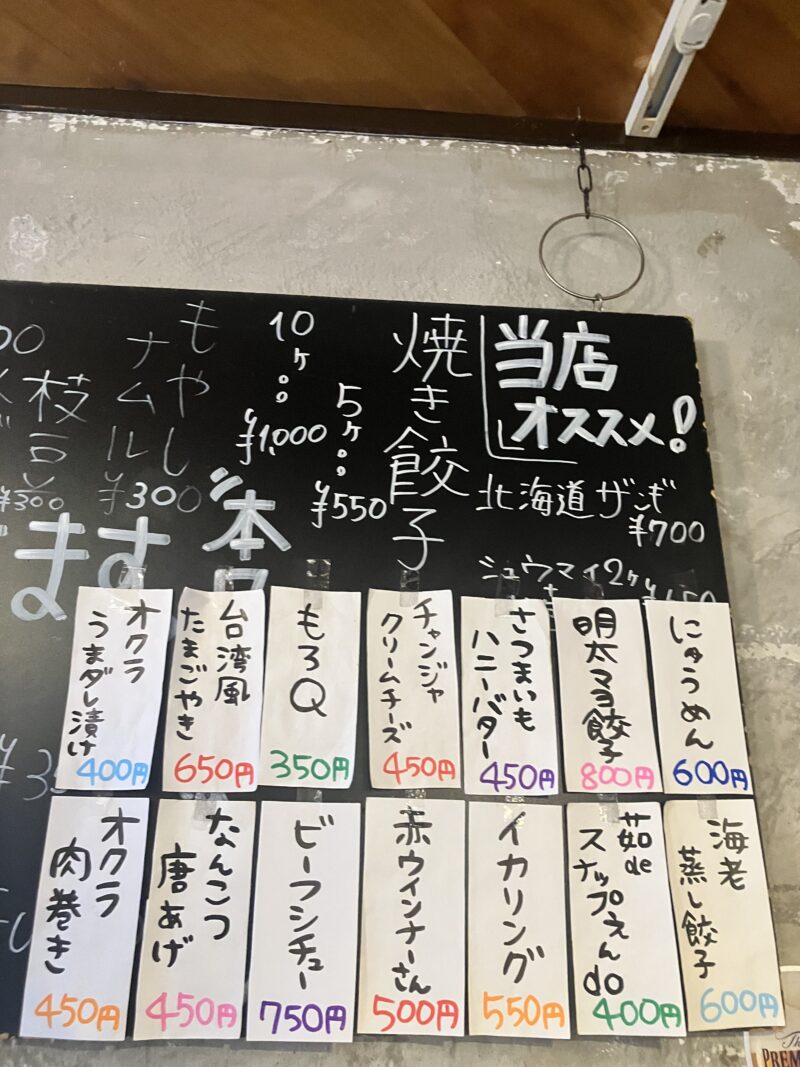 当店
オススメ!
北海道ザンギ
¥700
シュウマイ2ケ
焼き餃子
5ケ
¥550
10ケ
¥1,000
もやし
ナムル
¥300
枝豆
¥300
ます
にゅうめん
600円
明太マヨ餃子
800円
さつまいも
ハニーバター
450円
チャンジャ
クリームチーズ
450円
もろQ
350円
台湾風
たまごやき
650円
オクラ
うまダレ漬け
400円
海老
蒸し餃子
600円
茹de
スナップえんdo
400円
イカリング
550円
赤ウインナーさん
500円
ビーフシチュー
750円
なんこつ
唐あげ
450円
オクラ
肉巻き
450円
PREM